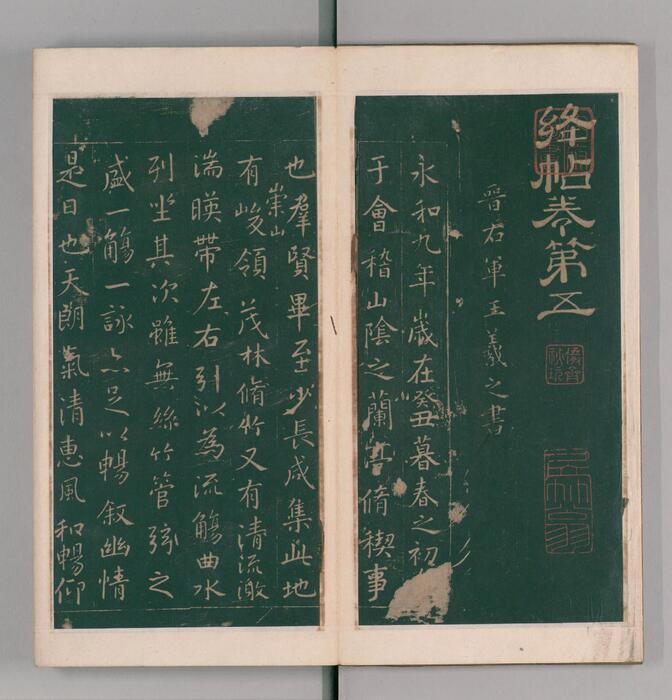 絳帖卷第五
晉右軍王羲之書
永和九年歲在癸丑暮春之初
于會稽山陰之蘭亭脩稧事
也羣賢畢至少長咸集此地
有崇山峻領茂林脩竹又有清流激
湍暎帶左右引以為流觴曲水
列坐其次雖無絲竹管弦之
盛一觴一詠亦足以暢叙幽情
是日也天朗氣清惠風和暢仰